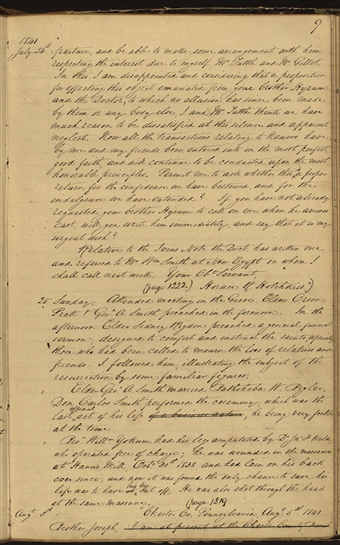 9
1841
July 24th departure, and be able to make some arrangement with him
respecting the interest due to myself Mr Tuttle and Mr Gillet.
In this I am disappointed and considering that a proposition
for effecting this object emanated from your brother Hyrum
and the Doctor, to which no allusion has since been made
by them or any body else. I and Mr Tuttle think we have
much reason to be dissatisfied at this silence and apparent
neglect. Now all the transactions relating to Nauvoo have
by me and my friends been entered into in the most perfect
good faith, and will continue to be conducted upon the most
honorable principles. Permit me to ask whether this is proper
return for the confidence we have bestowed and for the
indulgence we have extended? If you have not already
requested your brother Hyrum to call on me when he arrives
East, will you write him immediately, and say that it is my
urgent wish?
Relative to the Ivins Note the Doct has written me
and referred to Mr Wm Smith at New Egypt on whom I
shall call next week. Your Obt Servant,
(page 1222.) Horace R Hotchkiss."
25 Sunday. Attended meeting in the Grove. Elders Orson
Pratt & Geo A. Smith preached in the forenoon. In the
afternoon Elder Sidney Rigdon preached a general funeral
sermon, designed to comfort and instruct the saints especially
those who had been called to mourn the loss of relatives and
friends. I followed him, illustrating the subject of the
resurrection by some familiar figures.
Elder Geo A. Smith married Bathsheba W. Bigler,
Don Carlos Smith performed the ceremony which was the
last official act of his life of a business nature, he being very feeble
at the time.
Bro Willm Yokum had his leg amputated by Dr
who operated free of charge; he was wounded in the massacre
at Hauns Mill, Octr 30th 1838 and had lain on his back
ever since; and now it was found the only chance to save his
life was to have his leg cut off. He was also shot through the head
at the same massacre. (page 1219)
Aug. 5th Chester Co, Pennsylvania, Aug. 5th 1841
Brother Joseph, I am at present at the Chester County